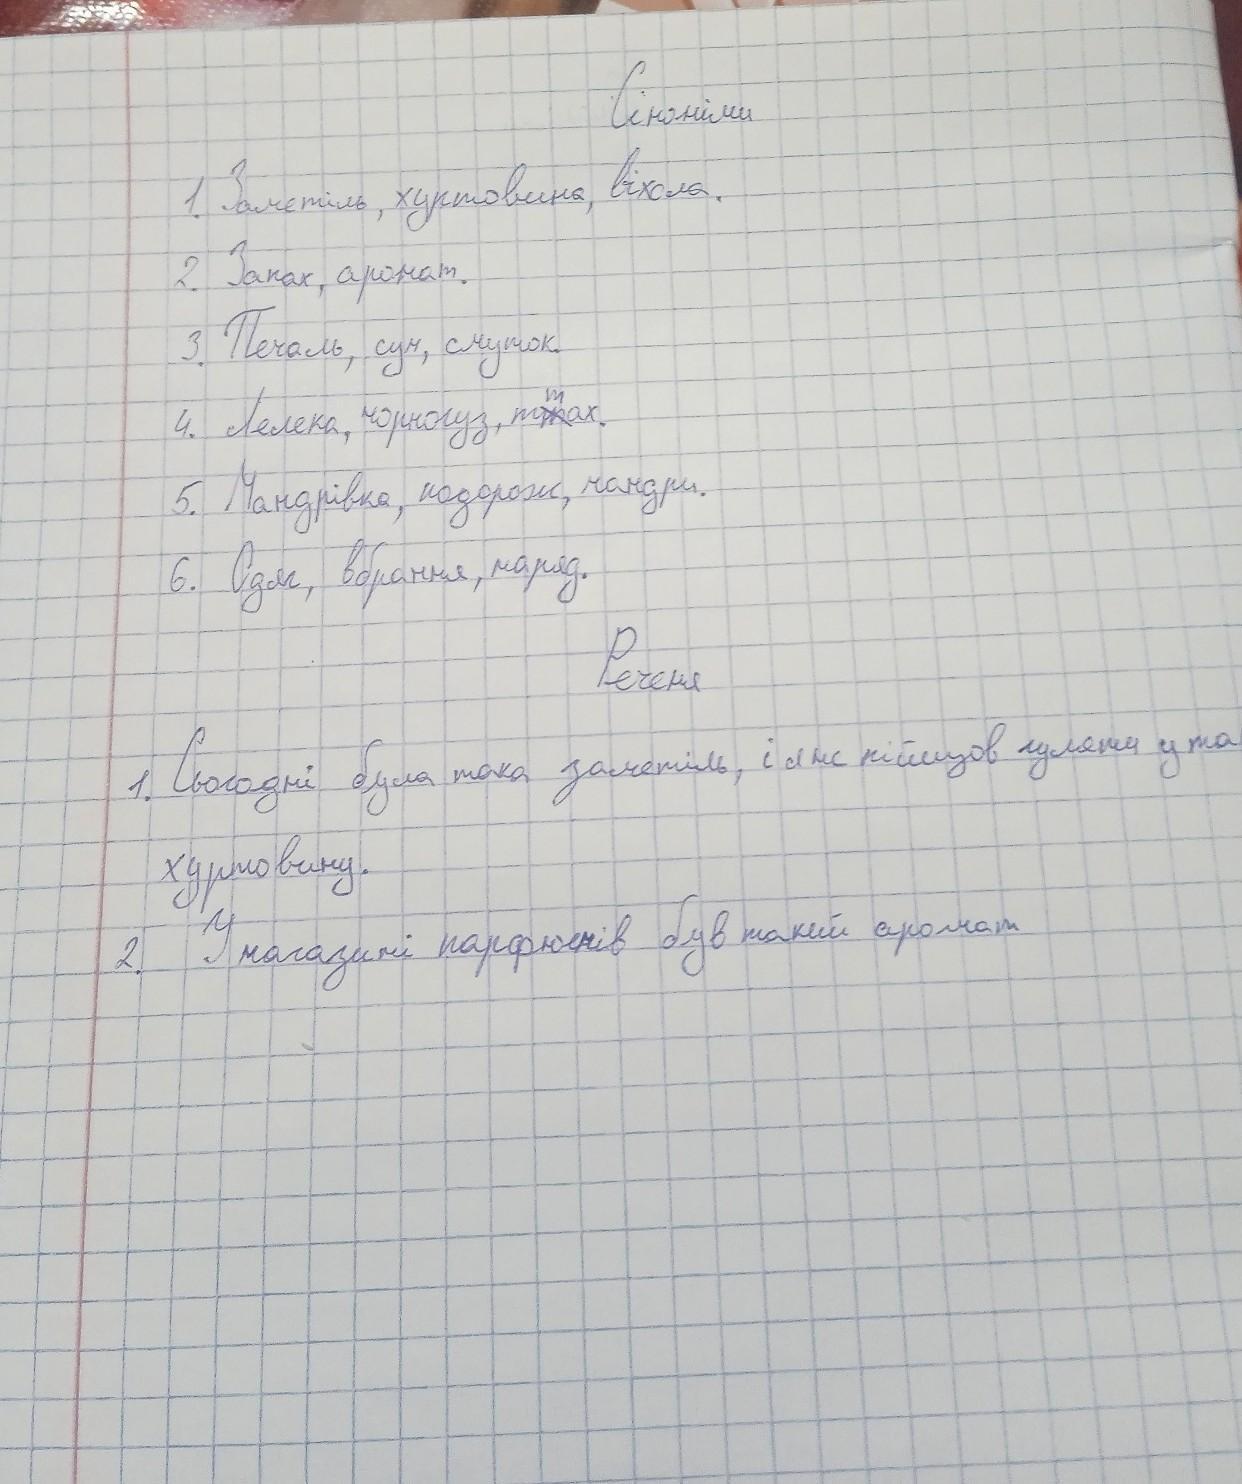 Сіноніми
1. Заметіль, хуртовина, віхола.
2. Запах, аромат.
3. Печаль, сум, смуток.
4. Лелека, чорногуз,
5. Мандрівка, подорож, мандри.
6. Одяг, вбрання, наряд.
Реченя
1. Сьогодні була така заметіль, і я не пійшов гуляти у та
хуртовину.
2. У магазині парфюмів був такий аромат